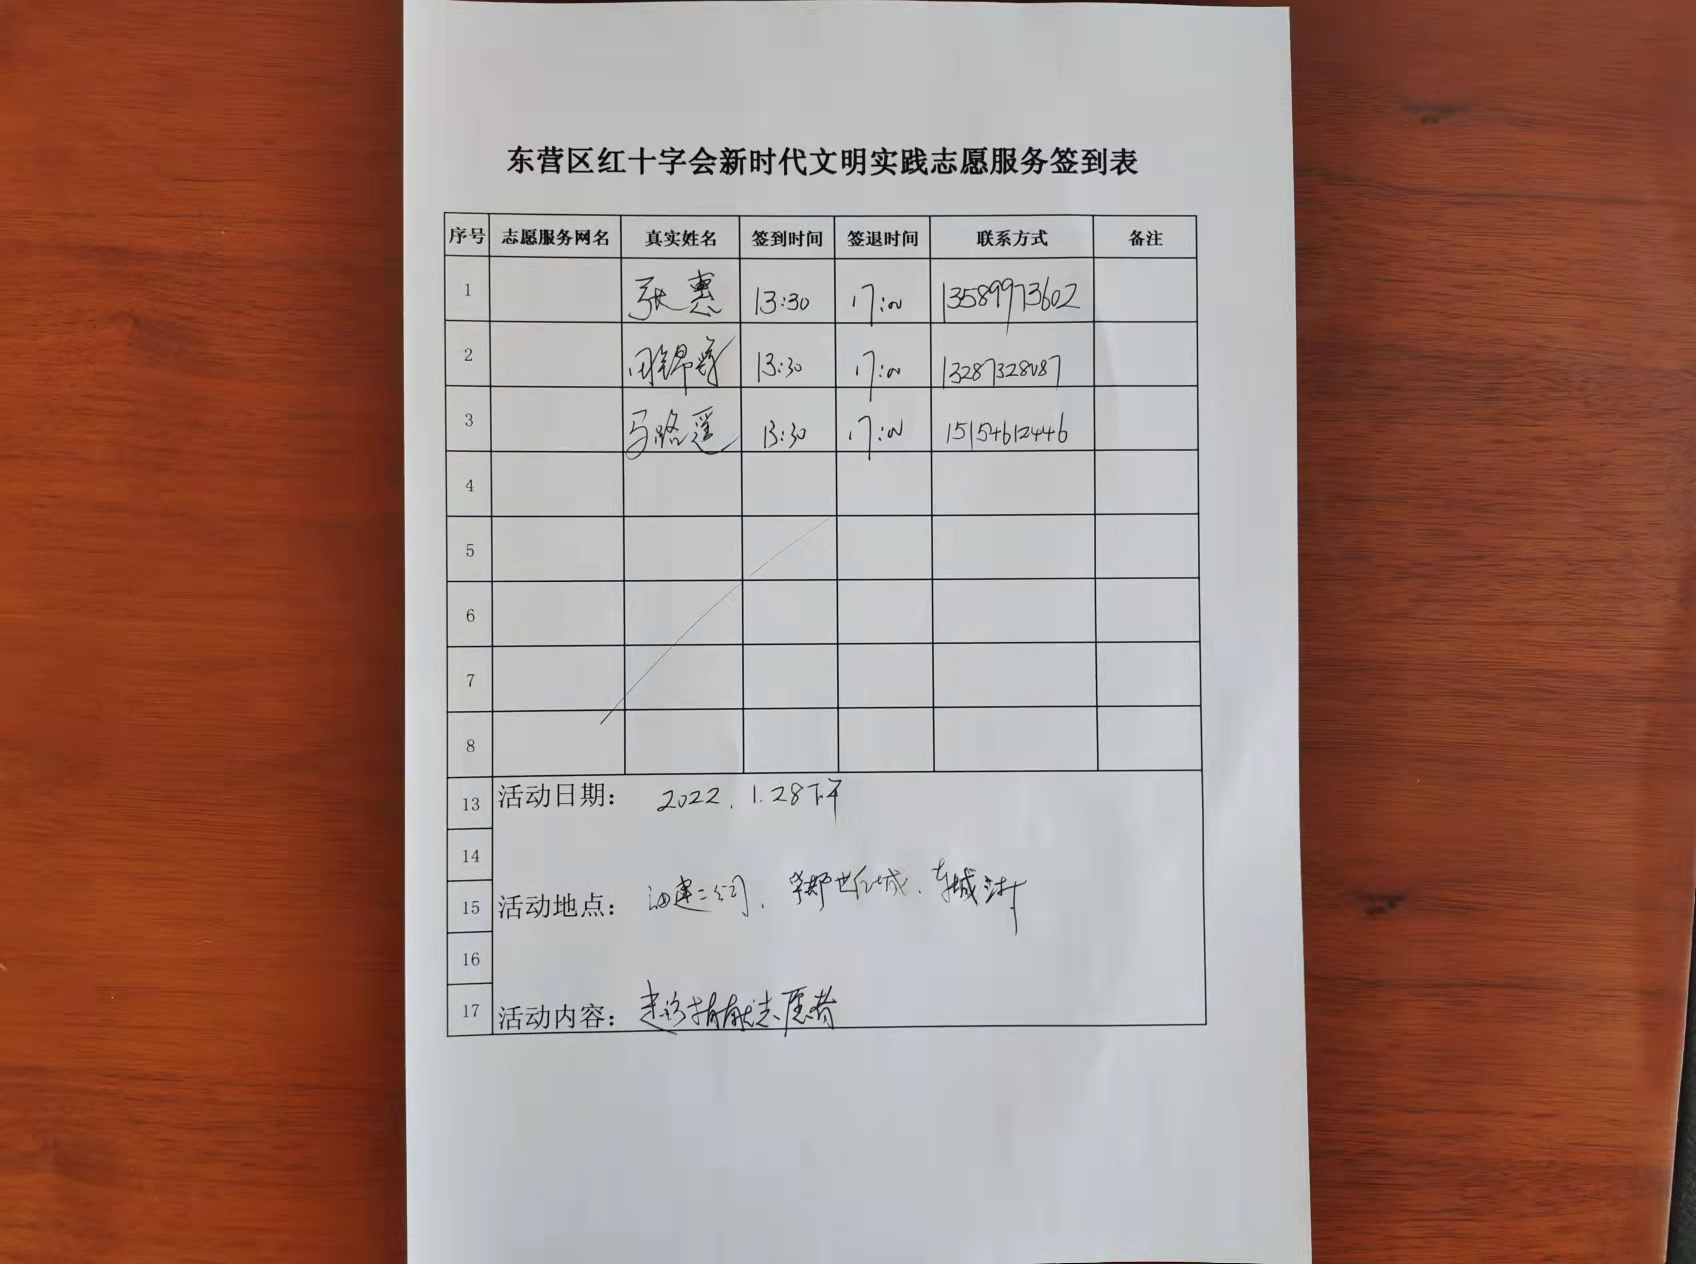 东营区红十字会新时代文明实践志愿服务签到表
序号 志愿服务网名 真实姓名 签到时间 签退时间 联系方式 备注
1 张惠 13:30 17:00 13589973602
2 13:30 17:00 13287328087
3 马路遥 13:30 17:00 15154612446
4
5
6
7
8
13 活动日期： 2022.1.28下午
14
15 活动地点： 油建二公司、 世纪城、东城
16
17 活动内容： 走访捐献志愿者